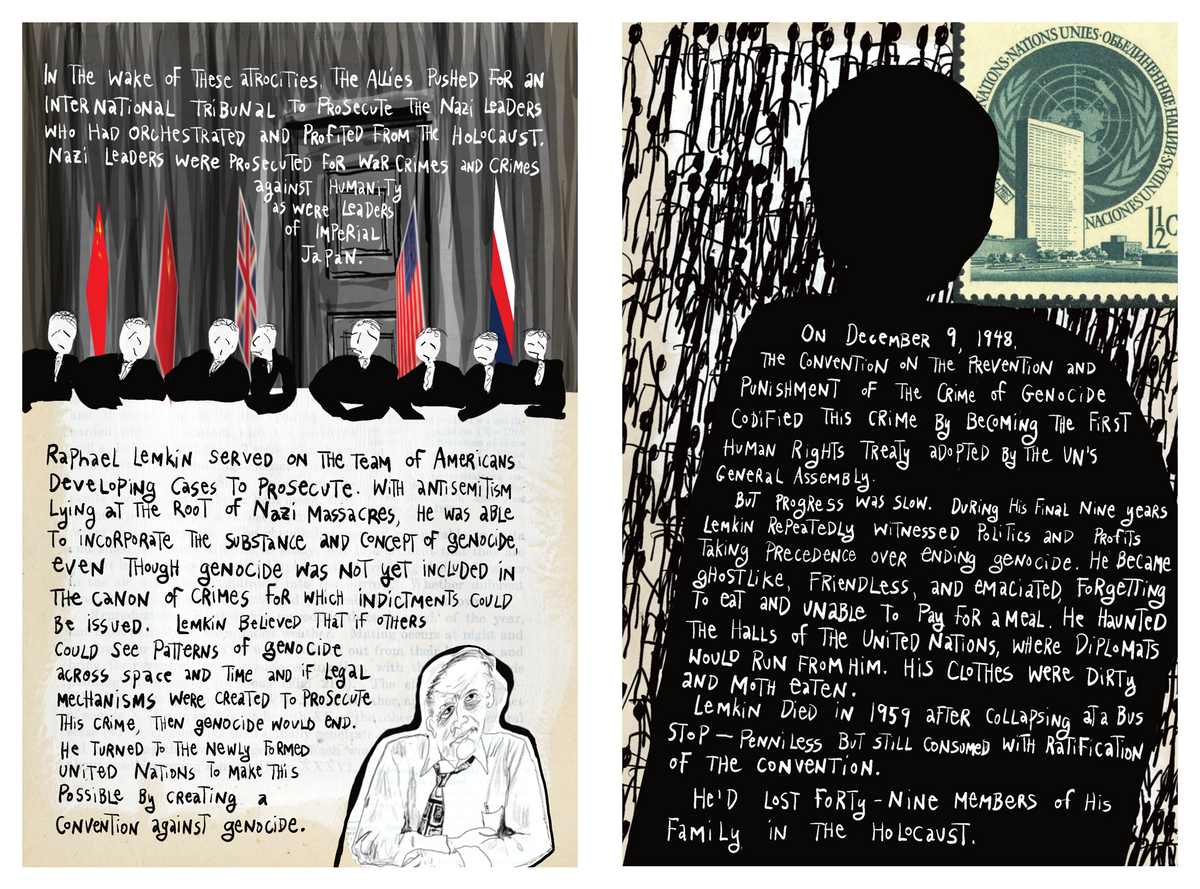 In the wake of these atrocities, the Allies pushed for an
international tribunal to prosecute the Nazi leaders
who had orchestrated and profited from the Holocaust.
Nazi leaders were prosecuted for war crimes and crimes
against humanity
as were leaders
of Imperial
Japan.
Raphael Lemkin served on the team of Americans
developing cases to prosecute. With antisemitism
lying at the root of Nazi massacres, he was able
to incorporate the substance and concept of genocide,
even though genocide was not yet included in
the canon of crimes for which indictments could
be issued. Lemkin believed that if others
could see patterns of genocide
across space and time and if legal
mechanisms were created to prosecute
this crime, then genocide would end.
He turned to the newly formed
United Nations to make this
possible by creating a
convention against genocide.
NATIONS·NATIONS UNIES·ОБЪЕДИНЕННЫЕ НАЦИИ
NACIONES UNIDAS
1½c
On December 9, 1948,
the Convention on the Prevention and
Punishment of the Crime of Genocide
codified this crime by becoming the first
human rights treaty adopted by the UN's
General Assembly.
But progress was slow. During his final nine years
Lemkin repeatedly witnessed politics and profits
taking precedence over ending genocide. He became
ghostlike, friendless, and emaciated, forgetting
to eat and unable to pay for a meal. He haunted
the halls of the United Nations, where diplomats
would run from him. His clothes were dirty
and moth eaten.
Lemkin died in 1959 after collapsing at a bus
stop — penniless but still consumed with ratification
of the convention.
He'd lost forty-nine members of his
family in the Holocaust.